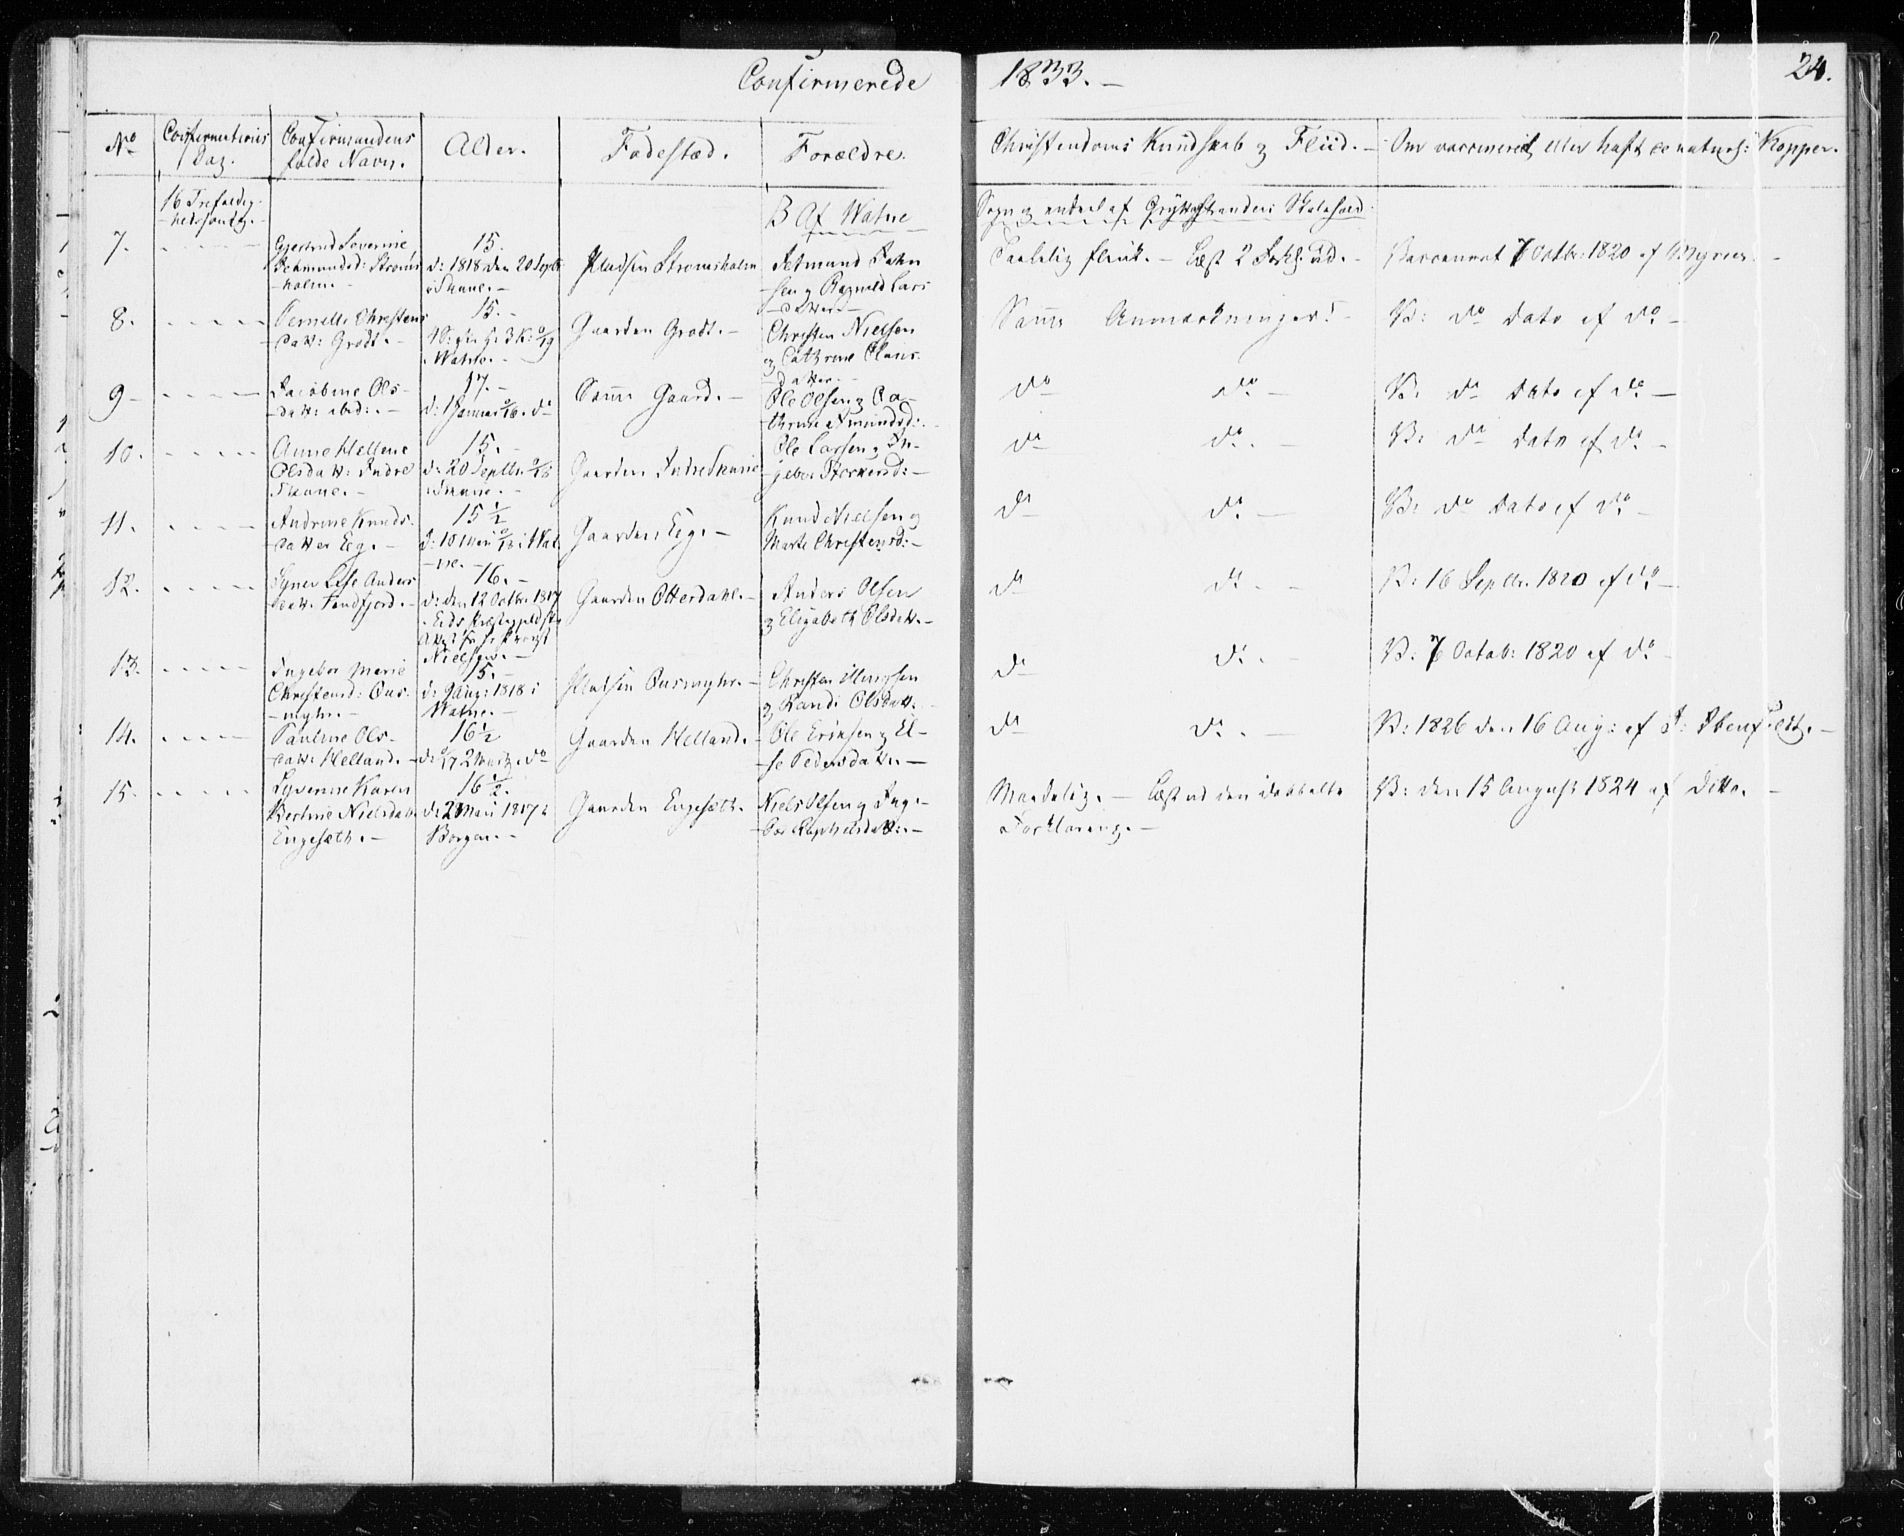 Confirmerede 1833. - 24.
No
Confirmations Dag.
Confirmandens fulde Navn.
Alder.
Fødestæd.
Forældre.
Christendoms Kundskab og Fliid. -
Om vaccineret eller haft de naturl: Kopper.
16 Trefoldig-
hedssøndg. -
B Af Watne
Sogn og endeel af Skolehold:
7.
Gjertrud Severine
Detmundsd: Strøms
holm. -
15.
d: 1818 den 20 Septb
i Skaue. -
Pladsen Strømsholm
Detmund John
sen og Ragnild Lars
datter. -
Taalelig flink. - Læst 2 Forkl: ud. -
Vaccineret 7 Octbr: 1820 af Myren. -
8.
Pernelle Christens
datt: Grødt. -
15. -
Watne. -
Gaarden Grødt. -
Christen Nielsen
og Cathrine Claus
datter. -
Samme Anmærkninger! -
V: do Dato af do -
9 -
Jacobine Ols-
datt: ibid: . -
17. -
d: 1 Januar do
Samme Gaard. -
Ole Olsen og Ca-
thrine Amundsd:.
do do -
V: do Dato af do -
10.
Anne Hellene
Olsdatt: Indre
Skaue. -
15. -
d: 20 Septbr.
i Skaue. -
Gaarden Indre Skaue
Ole Larsen og In-
geber d: -
do do. -
V: do Dato af do -
11.
Andrine Knuds-
datter Eeg. -
15 1/2
d: 10 i Wat
ne. -
Gaarden Eeg. -
Knud Nielsen og
Marte Christensd: -
do do. -
V: do Dato af do -
12.
Synev Lise Anders
datt: Sundfjord. -
16. -
d: den 12 Octbr. 1817
i Eids Præstegjeld
Nielsen. -
Gaarden Otterdahl. -
Anders Olsen
og Elizabeth Olsdatt. -
do do. -
V: 16 Septbr. 1820 af do -
13.
Ingebor Marie
Christensd: Aus-
myhr. -
15. -
d: 9 Aug: 1818 i
Watne. -
Pladsen Ausmyhr. -
Christen
og Randi Olsdatt.
do do. -
V: 7 Octob: 1820 af do -
14.
Pauline Ols-
datt: Helland. -
16 1/2
do
Gaarden Helland. -
Ole Eriksen og El-
se Pedersdatt. -
do do. -
V: 1826 den 16 Aug: af -
15.
Lyserine Karen
Bertine Nielsdatt.
Engesæth. -
16 1/2. -
d: 2 Marti 1817 i
Borgen. -
Gaarden Engesæth. -
Niels Olsen og Inge-
bor -
Maadelig. - Læst ud den dobbelte
Forklaring. -
V: den 15 August 1824 af Ditto. -